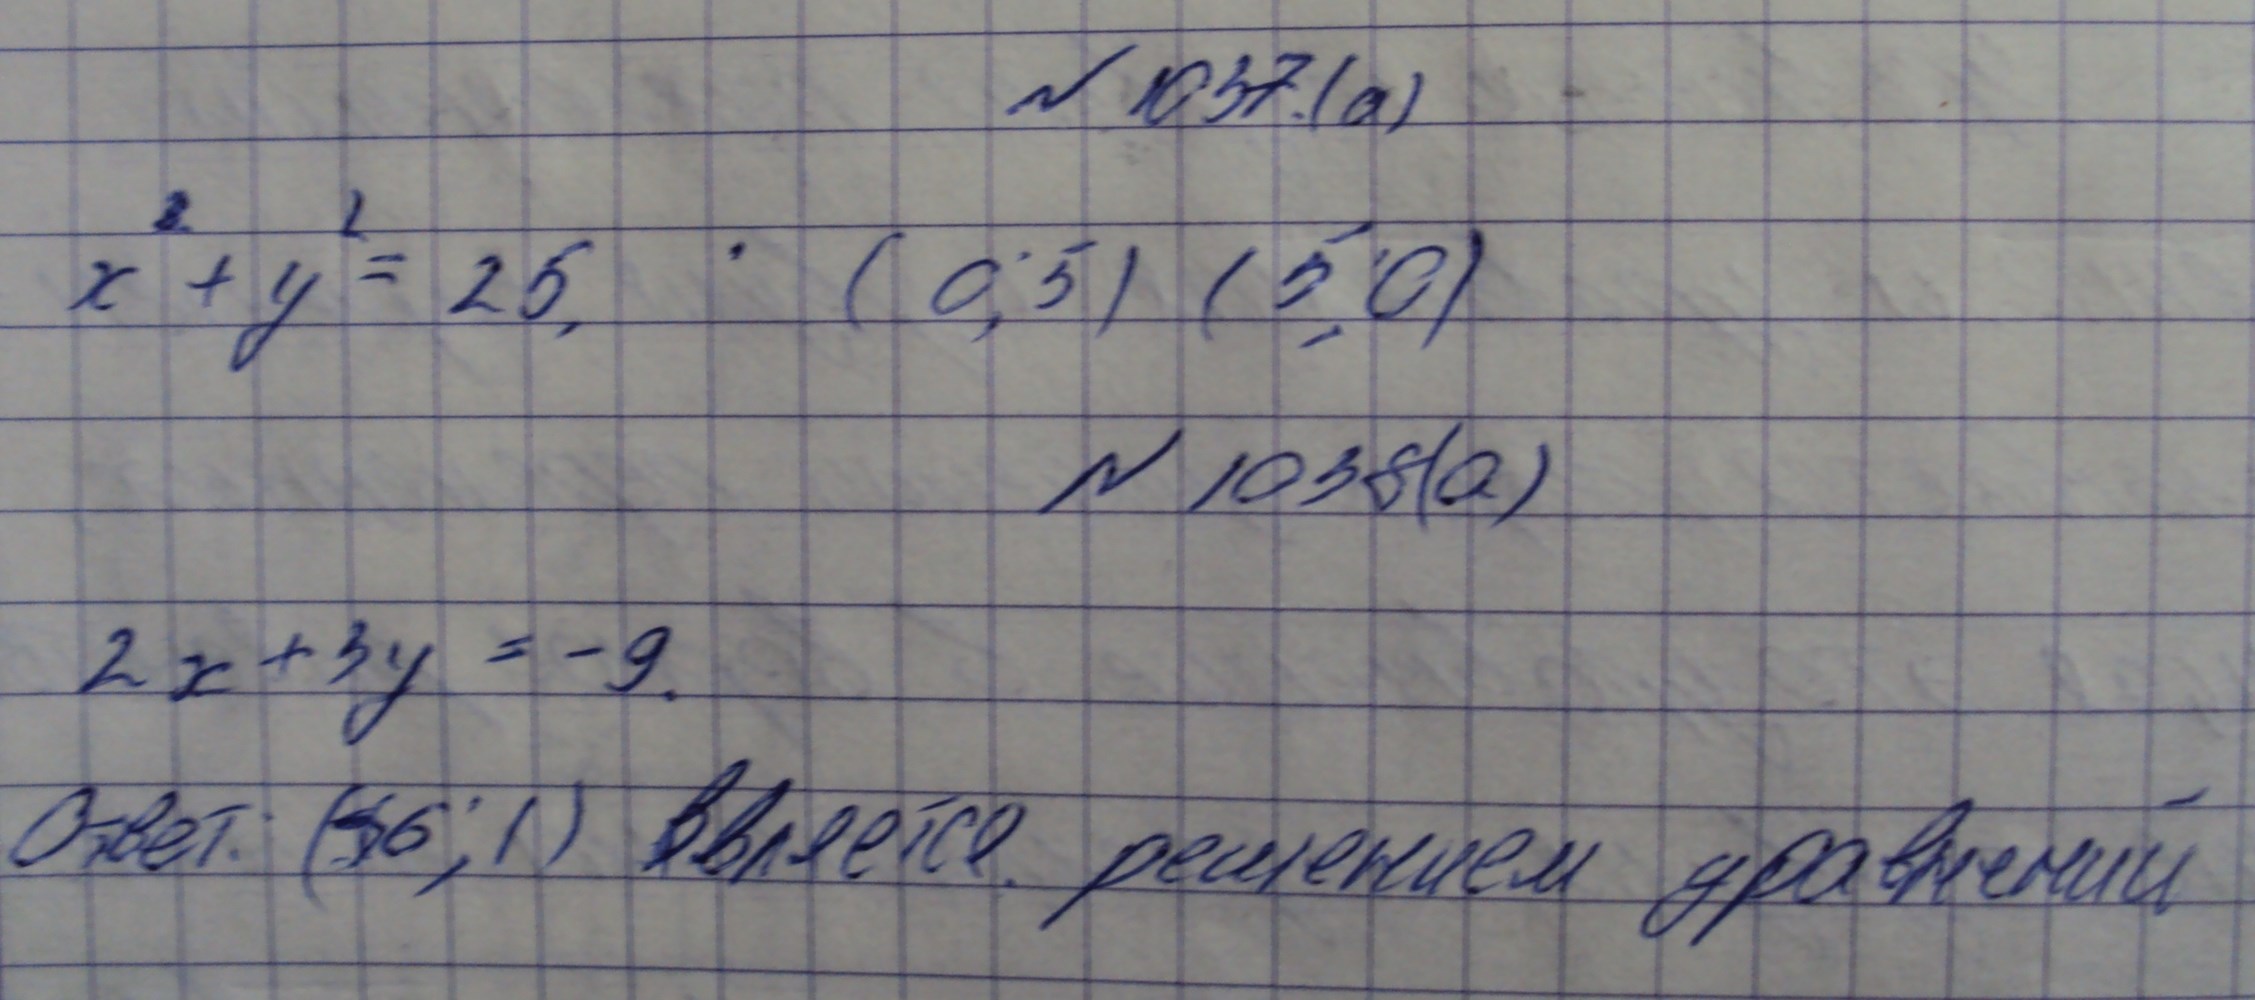 № 1037.(а)
x² + y² = 25, (0; 5) (5; 0)
№ 1038(а)
2x + 3y = -9.
Ответ: (6; 1) является решением уравнений